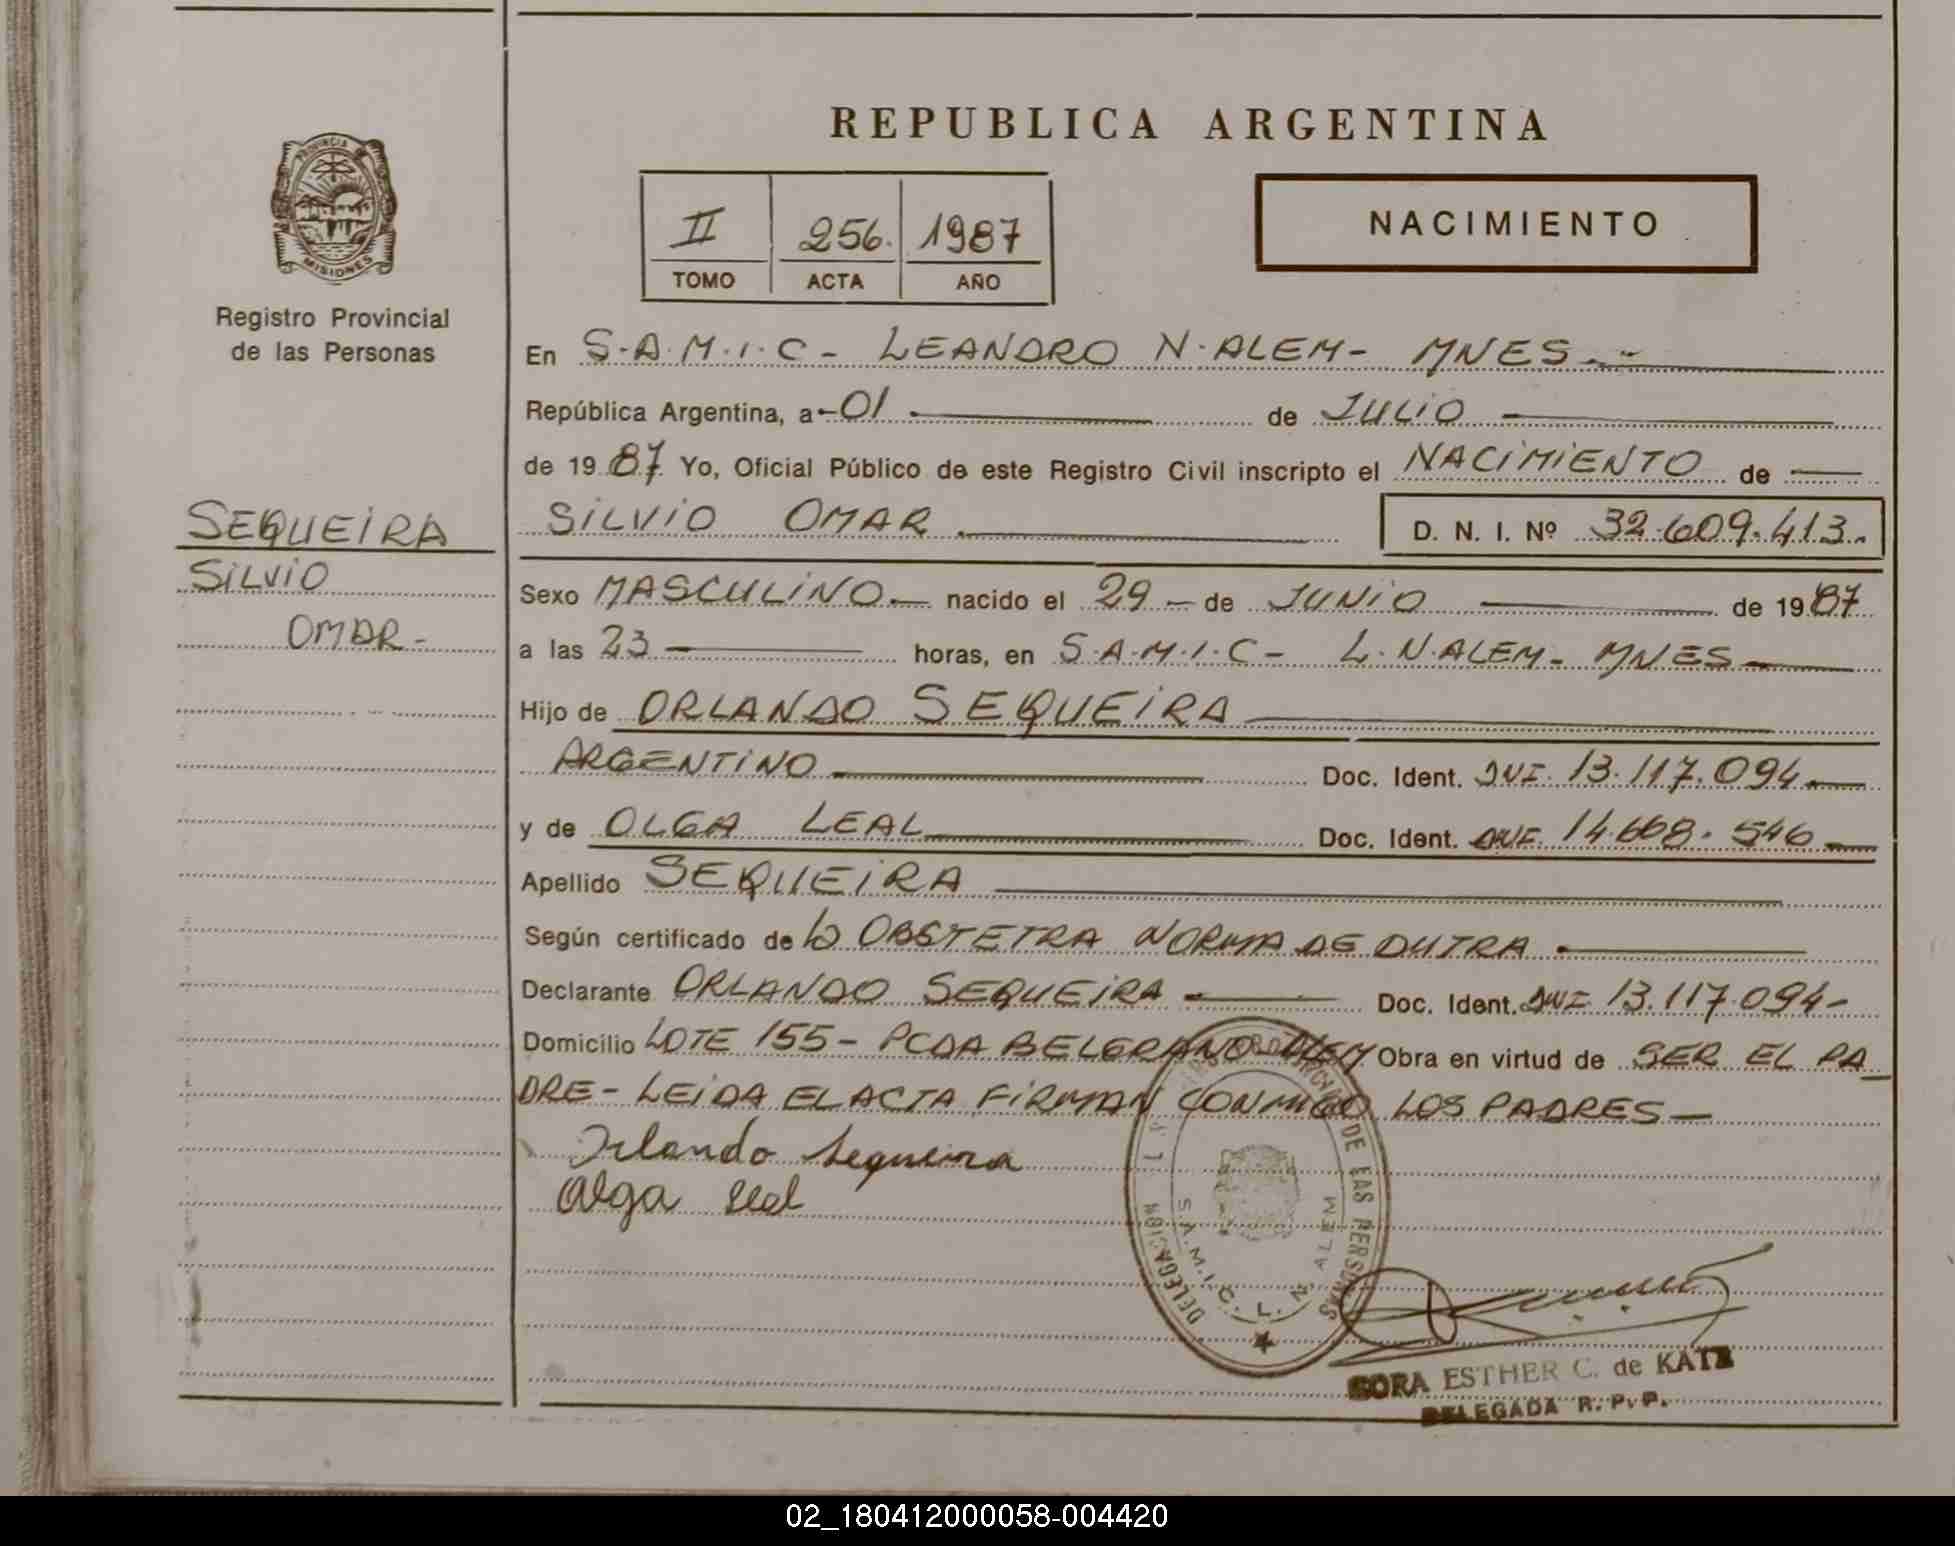 REPUBLICA ARGENTINA
PROVINCIA
MISIONES
Registro Provincial
de las Personas
II 256. 1987
TOMO ACTA AÑO
NACIMIENTO
En S.A.M.I.C - LEANDRO N. ALEM - MNES
República Argentina, a 01 de JULIO
de 1987. Yo, Oficial Público de este Registro Civil inscripto el NACIMIENTO de
SILVIO OMAR
D. N. I. Nº 32.609.413.
SEQUEIRA
SILVIO
OMAR -
Sexo MASCULINO - nacido el 29 - de JUNIO de 1987
a las 23 horas, en S.A.M.I.C - L. N. ALEM - MNES
Hijo de ORLANDO SEQUEIRA
ARGENTINO Doc. Ident. DNI. 13.117.094
y de OLGA LEAL Doc. Ident. DNI. 14.668.546
Apellido SEQUEIRA
Según certificado de la OBSTETRA NORMA DE DUTRA
Declarante ORLANDO SEQUEIRA Doc. Ident. DNI 13.117.094 -
Domicilio LOTE 155 - PCDA BELGRANO - ALEM Obra en virtud de SER EL PA_
DRE - LEIDA EL ACTA FIRMAN CONMIGO LOS PADRES -
Orlando Sequeira
Olga
DELEGACION DE LAS PERSONAS
S.A.M.I.C. L. N. ALEM
SORA ESTHER C. de KATZ
DELEGADA R. P. P.
02_180412000058-004420